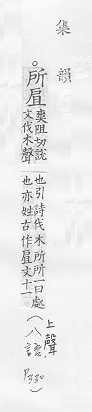 集韻
。所
爽阻切說
文伐木聲
也引詩伐木所所一曰處
也亦姓古作 文十一
(上聲
八語
P330)